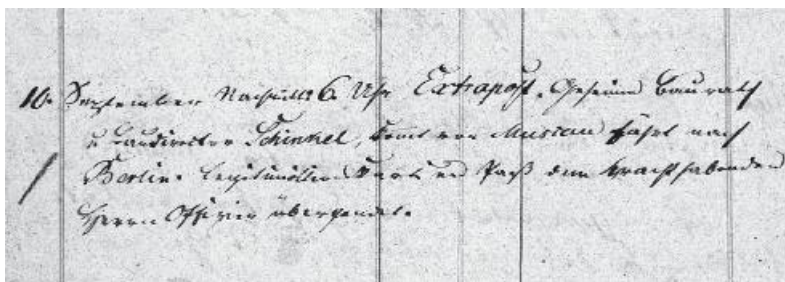 10. September Nachmitt. 6. Uhr Extrapost. Geheime Baurath
u Baudirector Schinkel, komt von Muscau fährt nach
Berlin. Legitimations Karte u Paß dem wachthabenden
Herrn Officier übersendet.